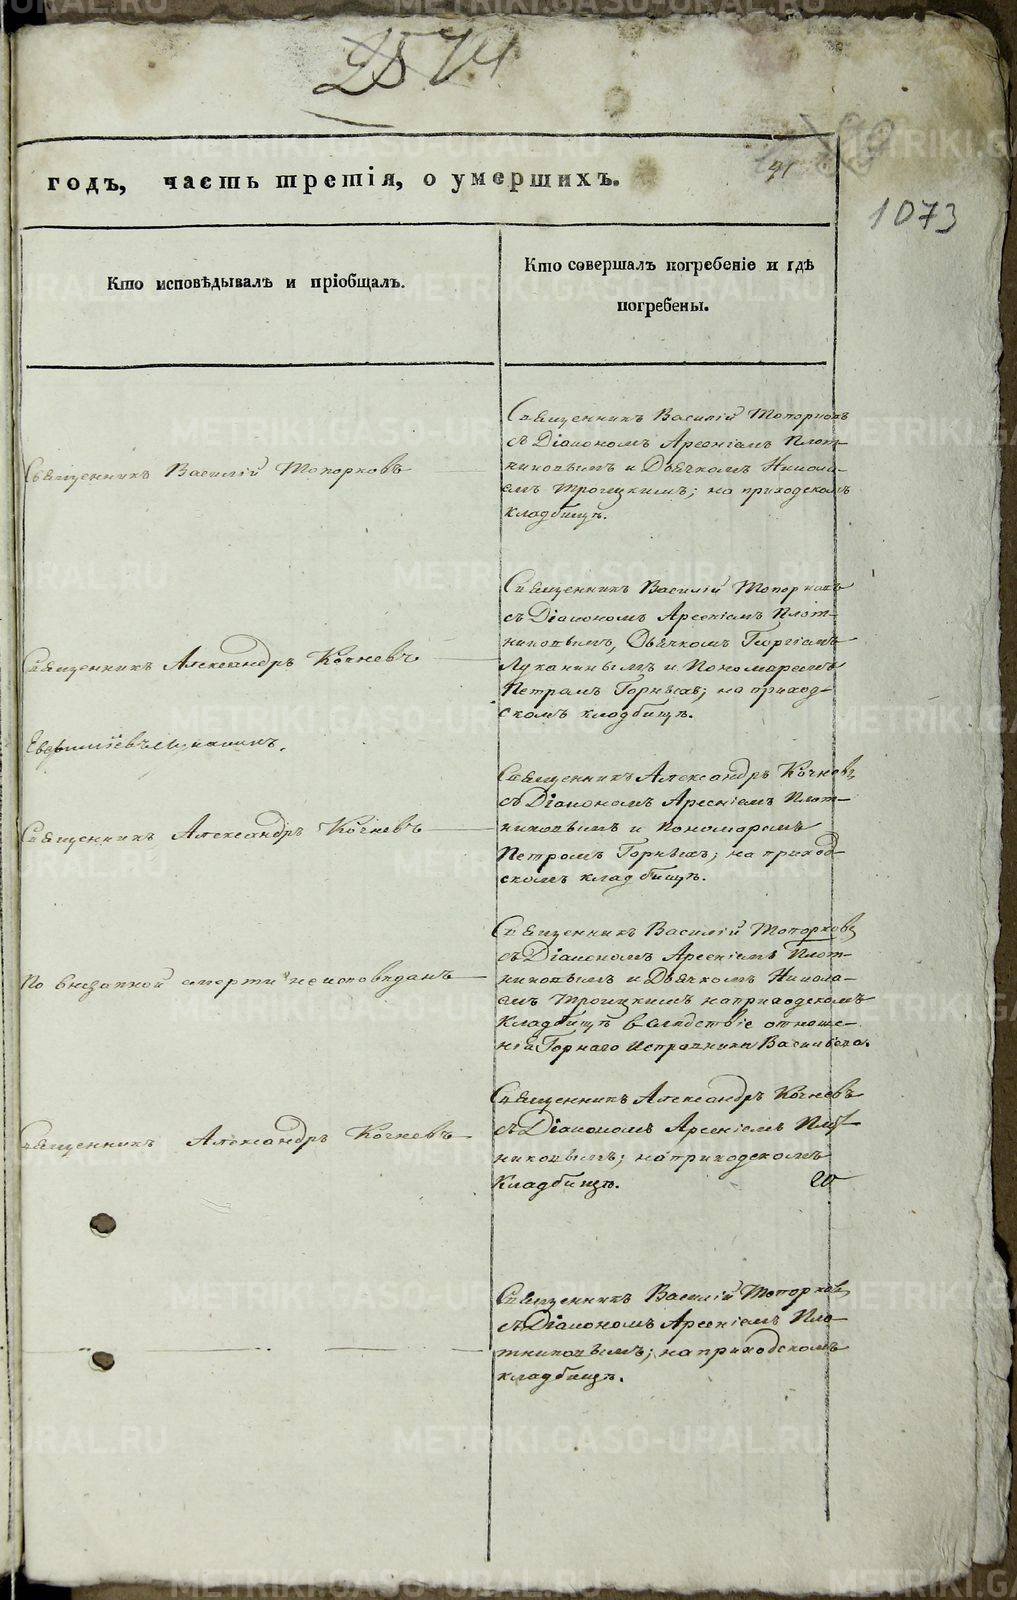 годъ, часть третія, о умершихъ.
1073
Кто исповѣдывалъ и пріобщалъ.
Кто совершалъ погребеніе и гдѣ
погребены.
Священникъ Василій Топорковъ
Священникъ Василій Топорковъ
съ Діакономъ Арсеніемъ Плот-
никовымъ и Дьячкомъ Никола-
емъ Троицкимъ; на приходскомъ
кладбищѣ.
Священникъ Александръ Кочневъ
Священникъ Василій Топорковъ
съ Діакономъ Арсеніемъ Плот-
никовымъ, Дьячкомъ Георгіемъ
Луканинымъ и Пономаремъ
Петромъ Горныхъ; на приход-
скомъ кладбищѣ.
Священникъ Александръ Кочневъ
Священникъ Александръ Кочневъ
съ Діакономъ Арсеніемъ Плот-
никовымъ и Пономаремъ
Петромъ Горныхъ; на приход-
скомъ кладбищѣ.
По внезапной смерти неисповѣданъ
Священникъ Василій Топорковъ
съ Діакономъ Арсеніемъ Плот-
никовымъ и Дьячкомъ Никола-
емъ Троицкимъ на приходскомъ
кладбищѣ вслѣдствіе отноше-
нія Горнаго Исправника Васильева.
Священникъ Александръ Кочневъ
Священникъ Александръ Кочневъ
съ Діакономъ Арсеніемъ Плот-
никовымъ; на приходскомъ
кладбищѣ.
Священникъ Василій Топорковъ
съ Діакономъ Арсеніемъ Пло-
тниковымъ; на приходскомъ
кладбищѣ.
METRIKI.GASO-URAL.RU